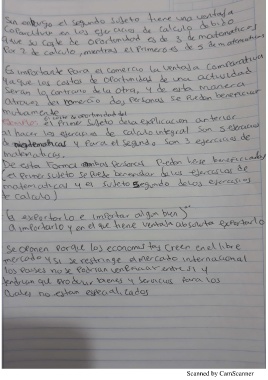 Sin embargo el segundo sujeto tiene una ventaja
comparativa en los ejercicios de calculo debido
que su coste de oportunidad es de 3 de matematicas
Por 2 de calculo, mientras el primero es de 5 de matematicas
Es importante para el comercio la ventaja comparativa
ya que los costos de oportunidad de una actividad
serian lo contrario de la otra, y de esta manera
atraves del comercio dos personas se pueden beneficiar
mutuamente
Primer sujeto de la explicacion anterior
al hacer los ejercicios de calculo integral son 5 ejercicios
de matematicas y para el segundo son 3 ejercicios de
matematicas.
De esta forma ambas personas pueden
el primer sujeto se puede de los ejercicios de
matematicas y el sujeto segundo de los ejercicios
de calculo)
exportarlo e importar algun bien)
importarlo y en el que tiene ventaja absoluta exportarlo
Se oponen porque los economistas creen en el libre
mercado y si se restringe el mercado internacional
los países no se podrian entre si y
tendrian que producir bienes y servicios para los
cuales no estan especializados
Scanned by CamScanner